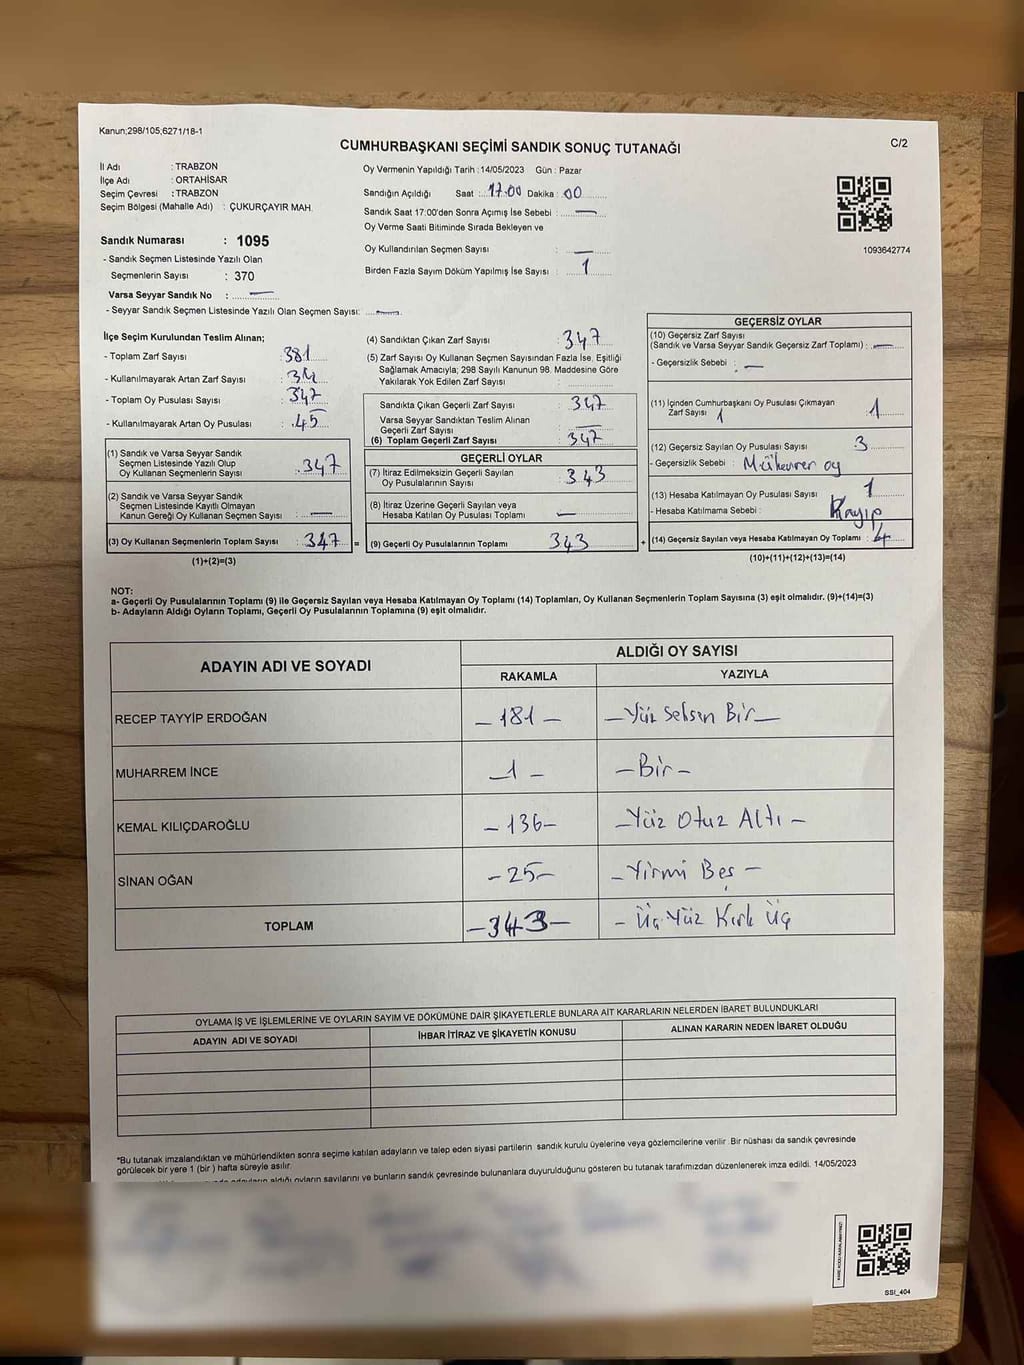 Kanun;298/105;6271/18-1
CUMHURBAŞKANI SEÇİMİ SANDIK SONUÇ TUTANAĞI
C/2
İl Adı : TRABZON
İlçe Adı : ORTAHİSAR
Seçim Çevresi : TRABZON
Seçim Bölgesi (Mahalle Adı) : ÇUKURÇAYIR MAH.
Sandık Numarası : 1095
- Sandık Seçmen Listesinde Yazılı Olan
Seçmenlerin Sayısı : 370
Varsa Seyyar Sandık No : —
- Seyyar Sandık Seçmen Listesinde Yazılı Olan Seçmen Sayısı: —
Oy Vermenin Yapıldığı Tarih : 14/05/2023 Gün : Pazar
Sandığın Açıldığı Saat : 17.00 Dakika : 00
Sandık Saat 17:00'den Sonra Açımış İse Sebebi : —
Oy Verme Saati Bitiminde Sırada Bekleyen ve
Oy Kullandırılan Seçmen Sayısı : —
Birden Fazla Sayım Döküm Yapılmış İse Sayısı : 1
1093642774
İlçe Seçim Kurulundan Teslim Alınan;
- Toplam Zarf Sayısı : 381
- Kullanılmayarak Artan Zarf Sayısı : 34
- Toplam Oy Pusulası Sayısı : 347
- Kullanılmayarak Artan Oy Pusulası : 45
(1) Sandık ve Varsa Seyyar Sandık
Seçmen Listesinde Yazılı Olup
Oy Kullanan Seçmenlerin Sayısı : 347
(2) Sandık ve Varsa Seyyar Sandık
Seçmen Listesinde Kayıtlı Olmayan
Kanun Gereği Oy Kullanan Seçmen Sayısı : —
(3) Oy Kullanan Seçmenlerin Toplam Sayısı : 347
(1)+(2)=(3)
(4) Sandıktan Çıkan Zarf Sayısı : 347
(5) Zarf Sayısı Oy Kullanan Seçmen Sayısından Fazla İse, Eşitliği
Sağlamak Amacıyla; 298 Sayılı Kanunun 98. Maddesine Göre
Yakılarak Yok Edilen Zarf Sayısı :
Sandıkta Çıkan Geçerli Zarf Sayısı : 347
Varsa Seyyar Sandıktan Teslim Alınan
Geçerli Zarf Sayısı : —
(6) Toplam Geçerli Zarf Sayısı : 347
GEÇERLİ OYLAR
(7) İtiraz Edilmeksizin Geçerli Sayılan
Oy Pusulalarının Sayısı : 343
(8) İtiraz Üzerine Geçerli Sayılan veya
Hesaba Katılan Oy Pusulası Toplamı : —
= (9) Geçerli Oy Pusulalarının Toplamı 343
GEÇERSİZ OYLAR
(10) Geçersiz Zarf Sayısı
(Sandık ve Varsa Seyyar Sandık Geçersiz Zarf Toplamı) : —
- Geçersizlik Sebebi : —
(11) İçinden Cumhurbaşkanı Oy Pusulası Çıkmayan
Zarf Sayısı 1 1
(12) Geçersiz Sayılan Oy Pusulası Sayısı 3
- Geçersizlik Sebebi : Mükerrer oy
(13) Hesaba Katılmayan Oy Pusulası Sayısı 1
- Hesaba Katılmama Sebebi : Kayıp
+ (14) Geçersiz Sayılan veya Hesaba Katılmayan Oy Toplamı : 4
(10)+(11)+(12)+(13)=(14)
NOT:
a- Geçerli Oy Pusulalarının Toplamı (9) ile Geçersiz Sayılan veya Hesaba Katılmayan Oy Toplamı (14) Toplamları, Oy Kullanan Seçmenlerin Toplam Sayısına (3) eşit olmalıdır. (9)+(14)=(3)
b- Adayların Aldığı Oyların Toplamı, Geçerli Oy Pusulalarının Toplamına (9) eşit olmalıdır.
ADAYIN ADI VE SOYADI
ALDIĞI OY SAYISI
RAKAMLA YAZIYLA
RECEP TAYYİP ERDOĞAN – 181 – – Yüz Seksen Bir –
MUHARREM İNCE – 1 – – Bir –
KEMAL KILIÇDAROĞLU – 136 – – Yüz Otuz Altı –
SİNAN OĞAN – 25 – – Yirmi Beş –
TOPLAM – 343 – – Üç Yüz Kırk Üç
OYLAMA İŞ VE İŞLEMLERİNE VE OYLARIN SAYIM VE DÖKÜMÜNE DAİR ŞİKAYETLERLE BUNLARA AİT KARARLARIN NELERDEN İBARET BULUNDUKLARI
ADAYIN ADI VE SOYADI İHBAR İTİRAZ VE ŞİKAYETİN KONUSU ALINAN KARARIN NEDEN İBARET OLDUĞU
*Bu tutanak imzalandıktan ve mühürlendikten sonra seçime katılan adayların ve talep eden siyasi partilerin sandık kurulu üyelerine veya gözlemcilerine verilir .Bir nüshası da sandık çevresinde
görülecek bir yere 1 (bir ) hafta süreyle asılır.
aldığı oyların sayılarını ve bunların sandık çevresinde bulunanlara duyurulduğunu gösteren bu tutanak tarafımızdan düzenlenerek imza edildi. 14/05/2023
SSI_404